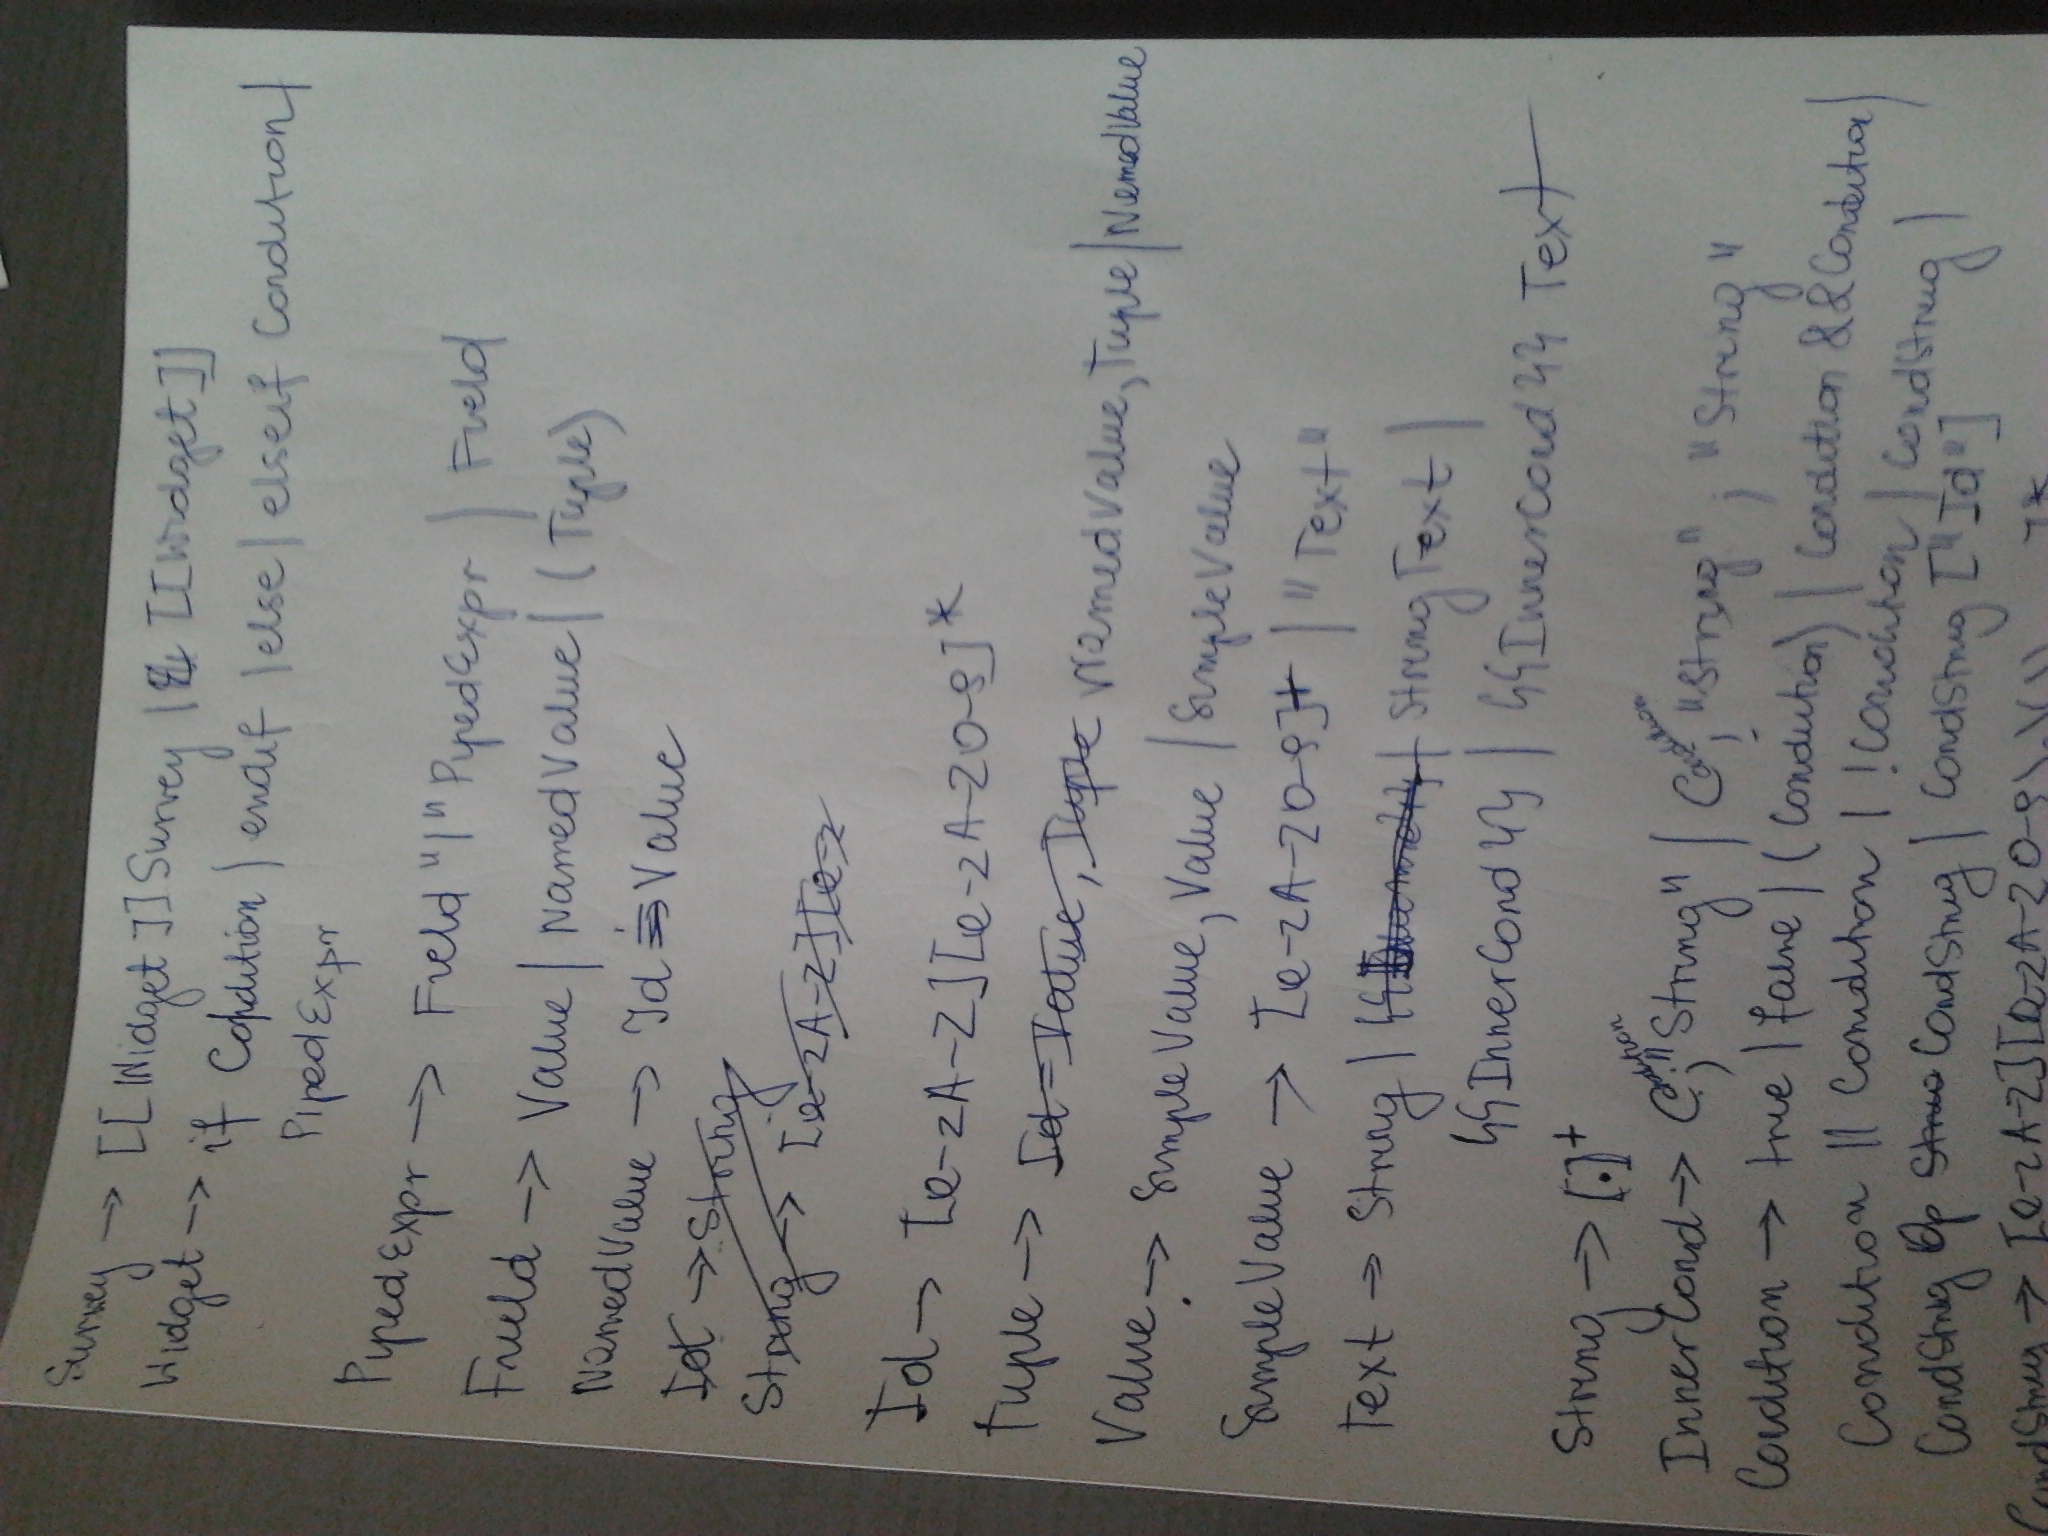 Survey → [[Widget]]Survey | [[Widget]]
Widget → if Condition | endif | else | elseif Condition |
PipedExpr
PipedExpr → Field "|" PipedExpr | Field
Field → Value | NamedValue | (Tuple)
NamedValue → Id = Value
Id → String
String → [a-zA-Z][a-z
Id → [a-zA-Z][a-zA-Z0-9]*
Tuple → Id=Value, Tuple NamedValue, Tuple | NamedValue
Value → SimpleValue, Value | SimpleValue
SimpleValue → [a-zA-Z0-9]+ | "Text"
Text → String | String Text |
{{InnerCond}} | {{InnerCond}} Text
String → [.]+
InnerCond → Condition, "String" | Condition, "String", "String"
Condition → true | false | (Condition) | Condition && Condition |
Condition || Condition | !Condition | CondString |
CondString Op CondString | CondString ["Id"]
CondString → [a-zA-Z][a-zA-Z0-9